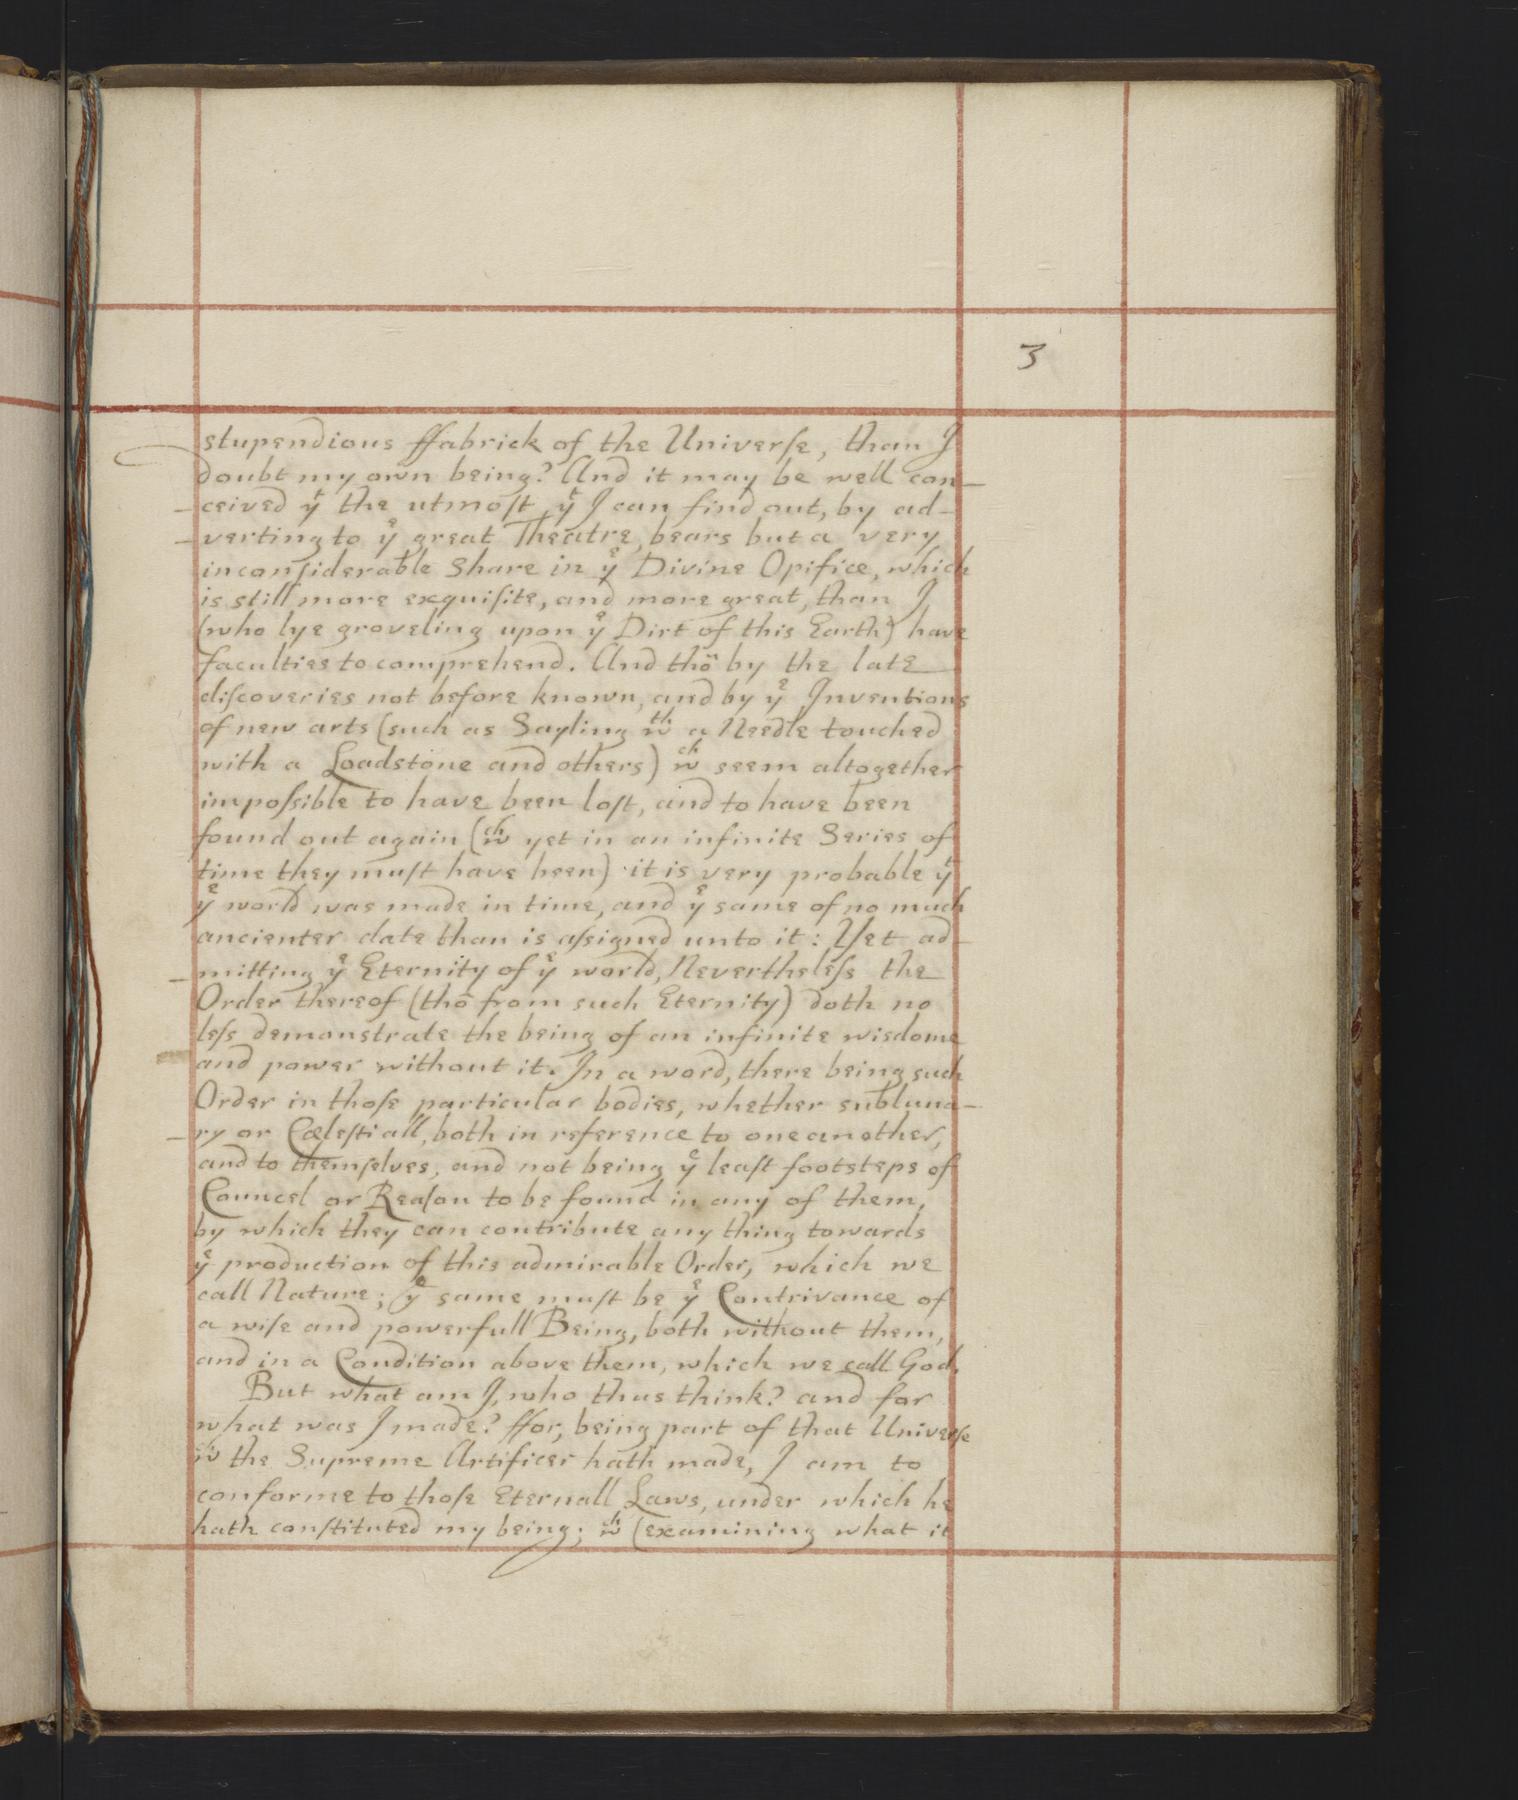 3
stupendious ffabrick of the Universe, than I
doubt my own being? And it may be well con-
-ceived yt the utmost yt I can find out, by ad-
-verting to ye great Theatre, bears but a very
inconsiderable Share in ye Divine Opifice, which
is still more exquisite, and more great, than I
(who lye groveling upon ye Dirt of this Earth) have
faculties to comprehend. And thô by the late
discoveries not before known, and by ye Inventions
of new arts (such as Sayling wth a Needle touched
with a Loadstone and others) wch seem altogether
impossible to have been lost, and to have been
found out again (wch yet in an infinite Series of
time they must have been) it is very probable yt
ye world was made in time, and ye same of no much
ancienter date than is assigned unto it: Yet ad-
-mitting ye Eternity of ye world, Nevertheless the
Order thereof (thô from such Eternity) doth no
less demonstrate the being of an infinite wisdome
and power without it. In a word, there being such
Order in those particular bodies, whether subluna-
-ry or Cælestiall, both in reference to one another,
and to themselves, and not being ye least footsteps of
Councel or Reason to be found in any of them,
by which they can contribute any thing towards
ye production of this admirable Order, which we
call Nature; ye same must be ye Contrivance of
a wise and powerfull Being, both without them,
and in a Condition above them, which we call God.
But what am I, who thus think? and for
what was I made? ffor, being part of that Universe
wch the Supreme Artificer hath made, I am to
conforme to those Eternall Laws, under which he
hath constituted my being; wch (examining what it